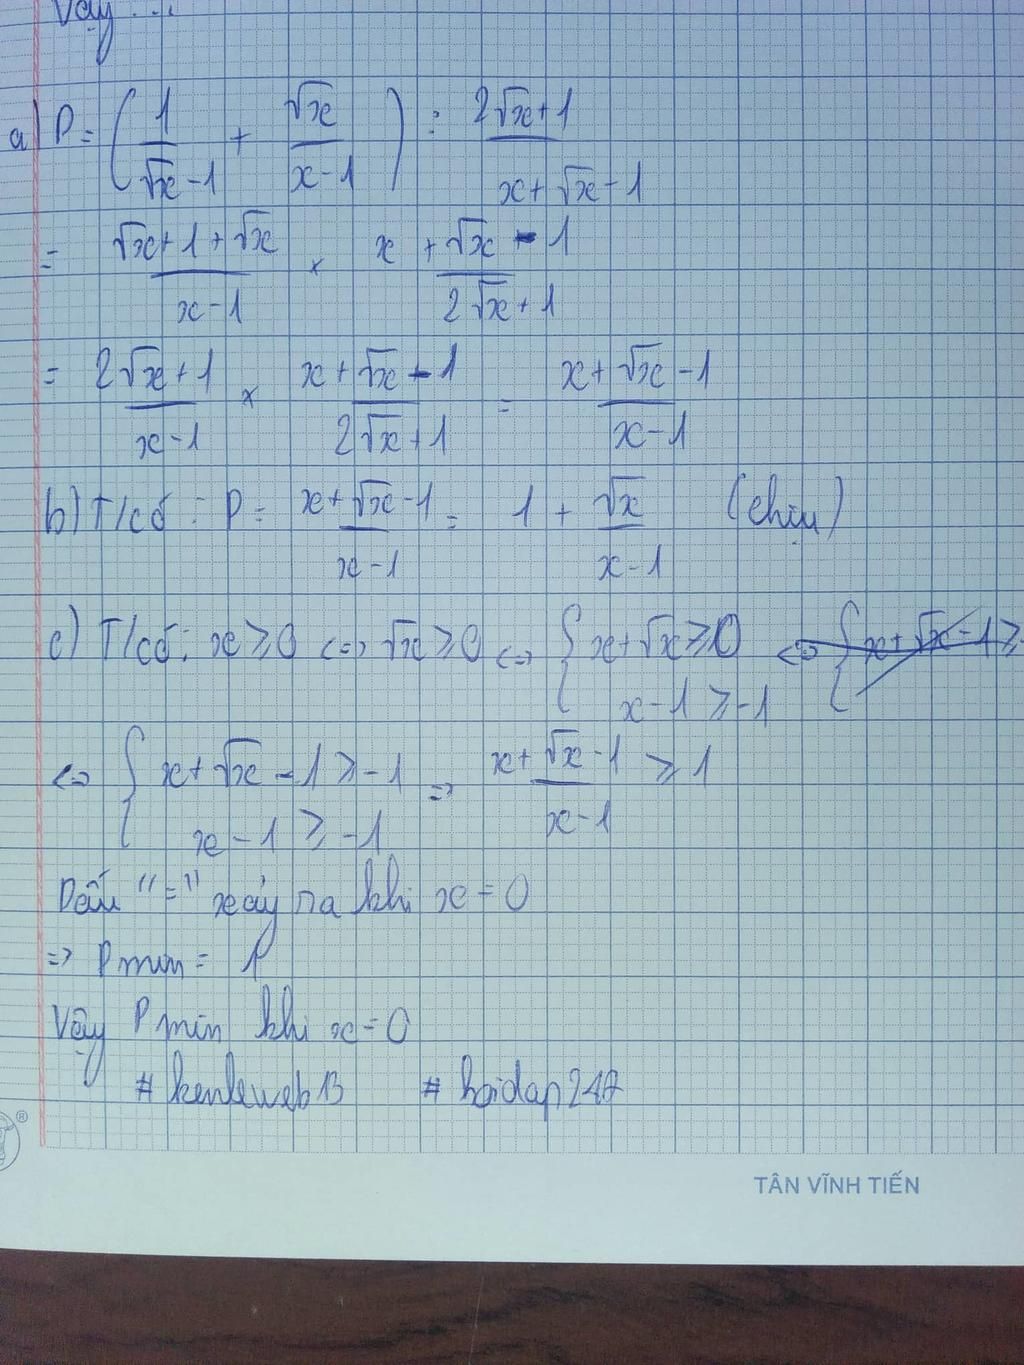 Vậy ...
a) P = ( 1/(√x - 1) + √x/(x - 1) ) : (2√x + 1)/(x + √x - 1)
= (√x + 1 + √x)/(x - 1) × (x + √x - 1)/(2√x + 1)
= (2√x + 1)/(x - 1) × (x + √x - 1)/(2√x + 1) = (x + √x - 1)/(x - 1)
b) T/có : P = (x + √x - 1)/(x - 1) = 1 + √x/(x - 1) (chịu)
c) T/có : x ≥ 0 <=> √x ≥ 0 <=> { x + √x ≥ 0 ; x - 1 ≥ -1 <=> { x + √x - 1 ≥
<=> { x + √x - 1 ≥ -1 ; x - 1 ≥ -1 => (x + √x - 1)/(x - 1) ≥ 1
Dấu "=" xảy ra khi x = 0
=> P min = 1
Vậy P min khi x = 0
# kenleweb13 # hoidap247
TÂN VĨNH TIẾN
®